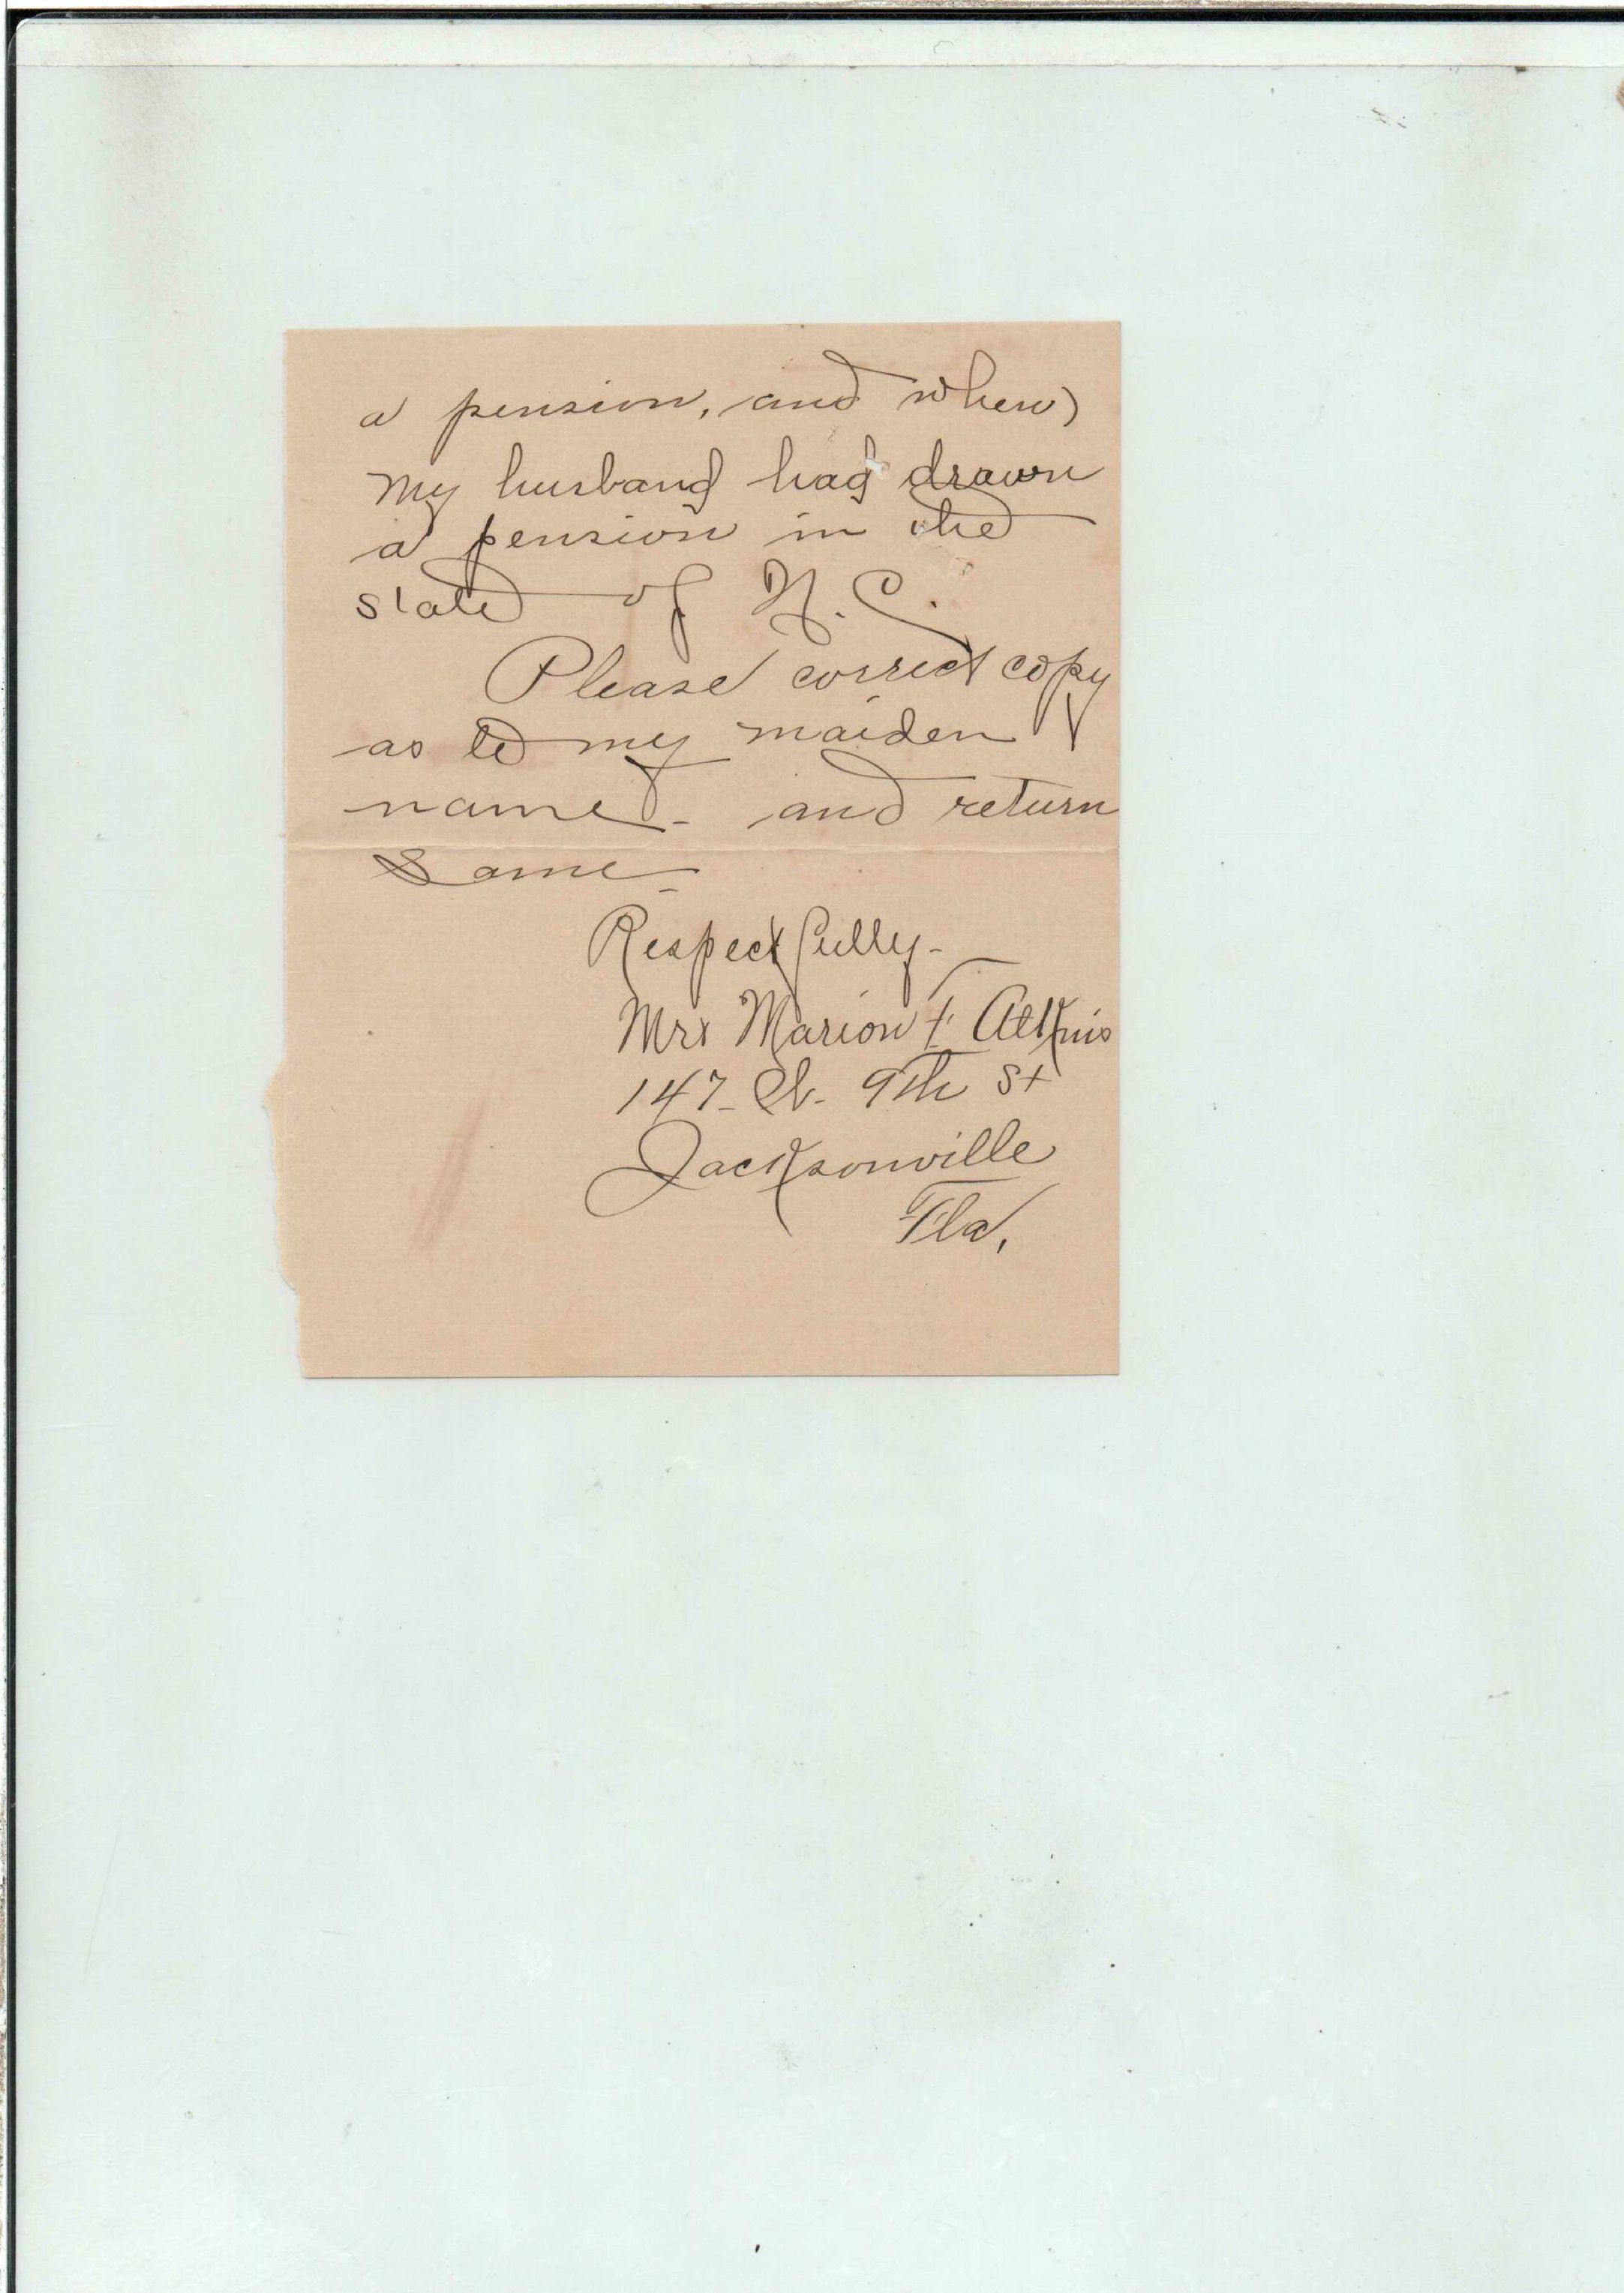 a pension, and when
my husband had drawn
a pension in the
state of N. C.
Please correct copy
as to my maiden
name - and return
same -
Respectfully -
Mrs Marion F Atkins
147 - 9th St
Jacksonville
Fla,